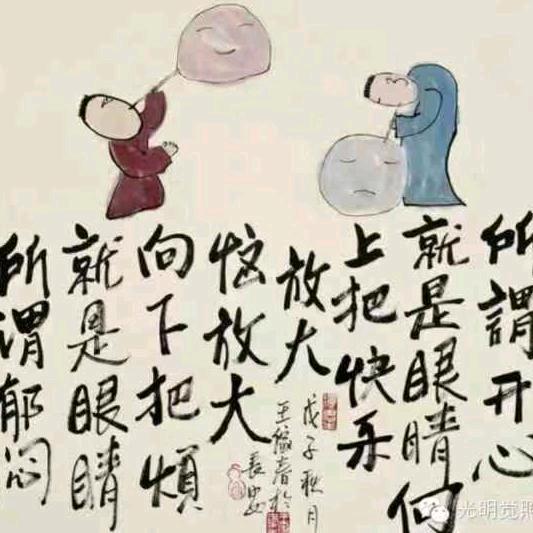 所謂开心
就是眼睛向
上把快乐
放大
所谓郁闷
就是眼睛
向下把煩
恼放大
戊子秋月
王 春於
長安
光明觉照